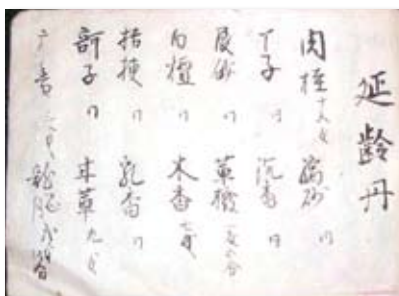 延齢丹
肉桂十六匁 縮砂 〃
丁子 〃 沉香 〃
辰砂 〃 蓽撥 一匁六分
白檀 〃 木香 七匁
桔梗 〃 乳香 〃
訶子 〃 甘草 九匁
广香 三匁 龍脳